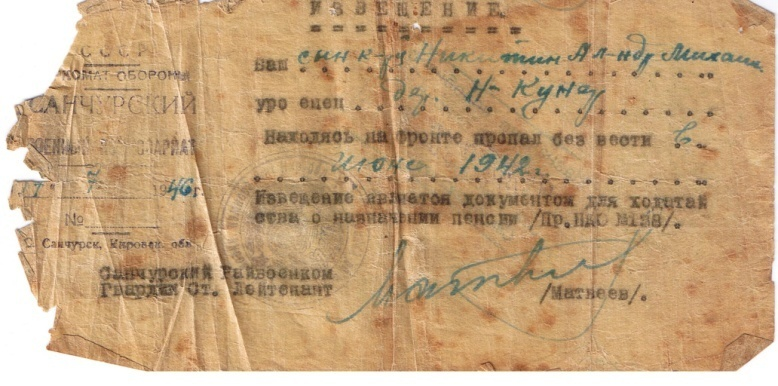 ИЗВЕЩЕНИЕ.
СССР
КОМАТ-ОБОРОНЫ
САНЧУРСКИЙ
ВОЕННЫЙ
1 7 1946г.
№
С. Санчурск, Кировск. обл.
ваш сын к-ц Никитин Ал-ндр Михаил.
уро енец дер. Н-Кунер
Находясь на фронте пропал без вести в
июне 1942г.
Извещение является документом для ходатай
ства о назначении пенсии /Пр.НКО №138/.
Санчурский Райвоенком
Гвардии Ст. Лейтенант /Матвеев/.